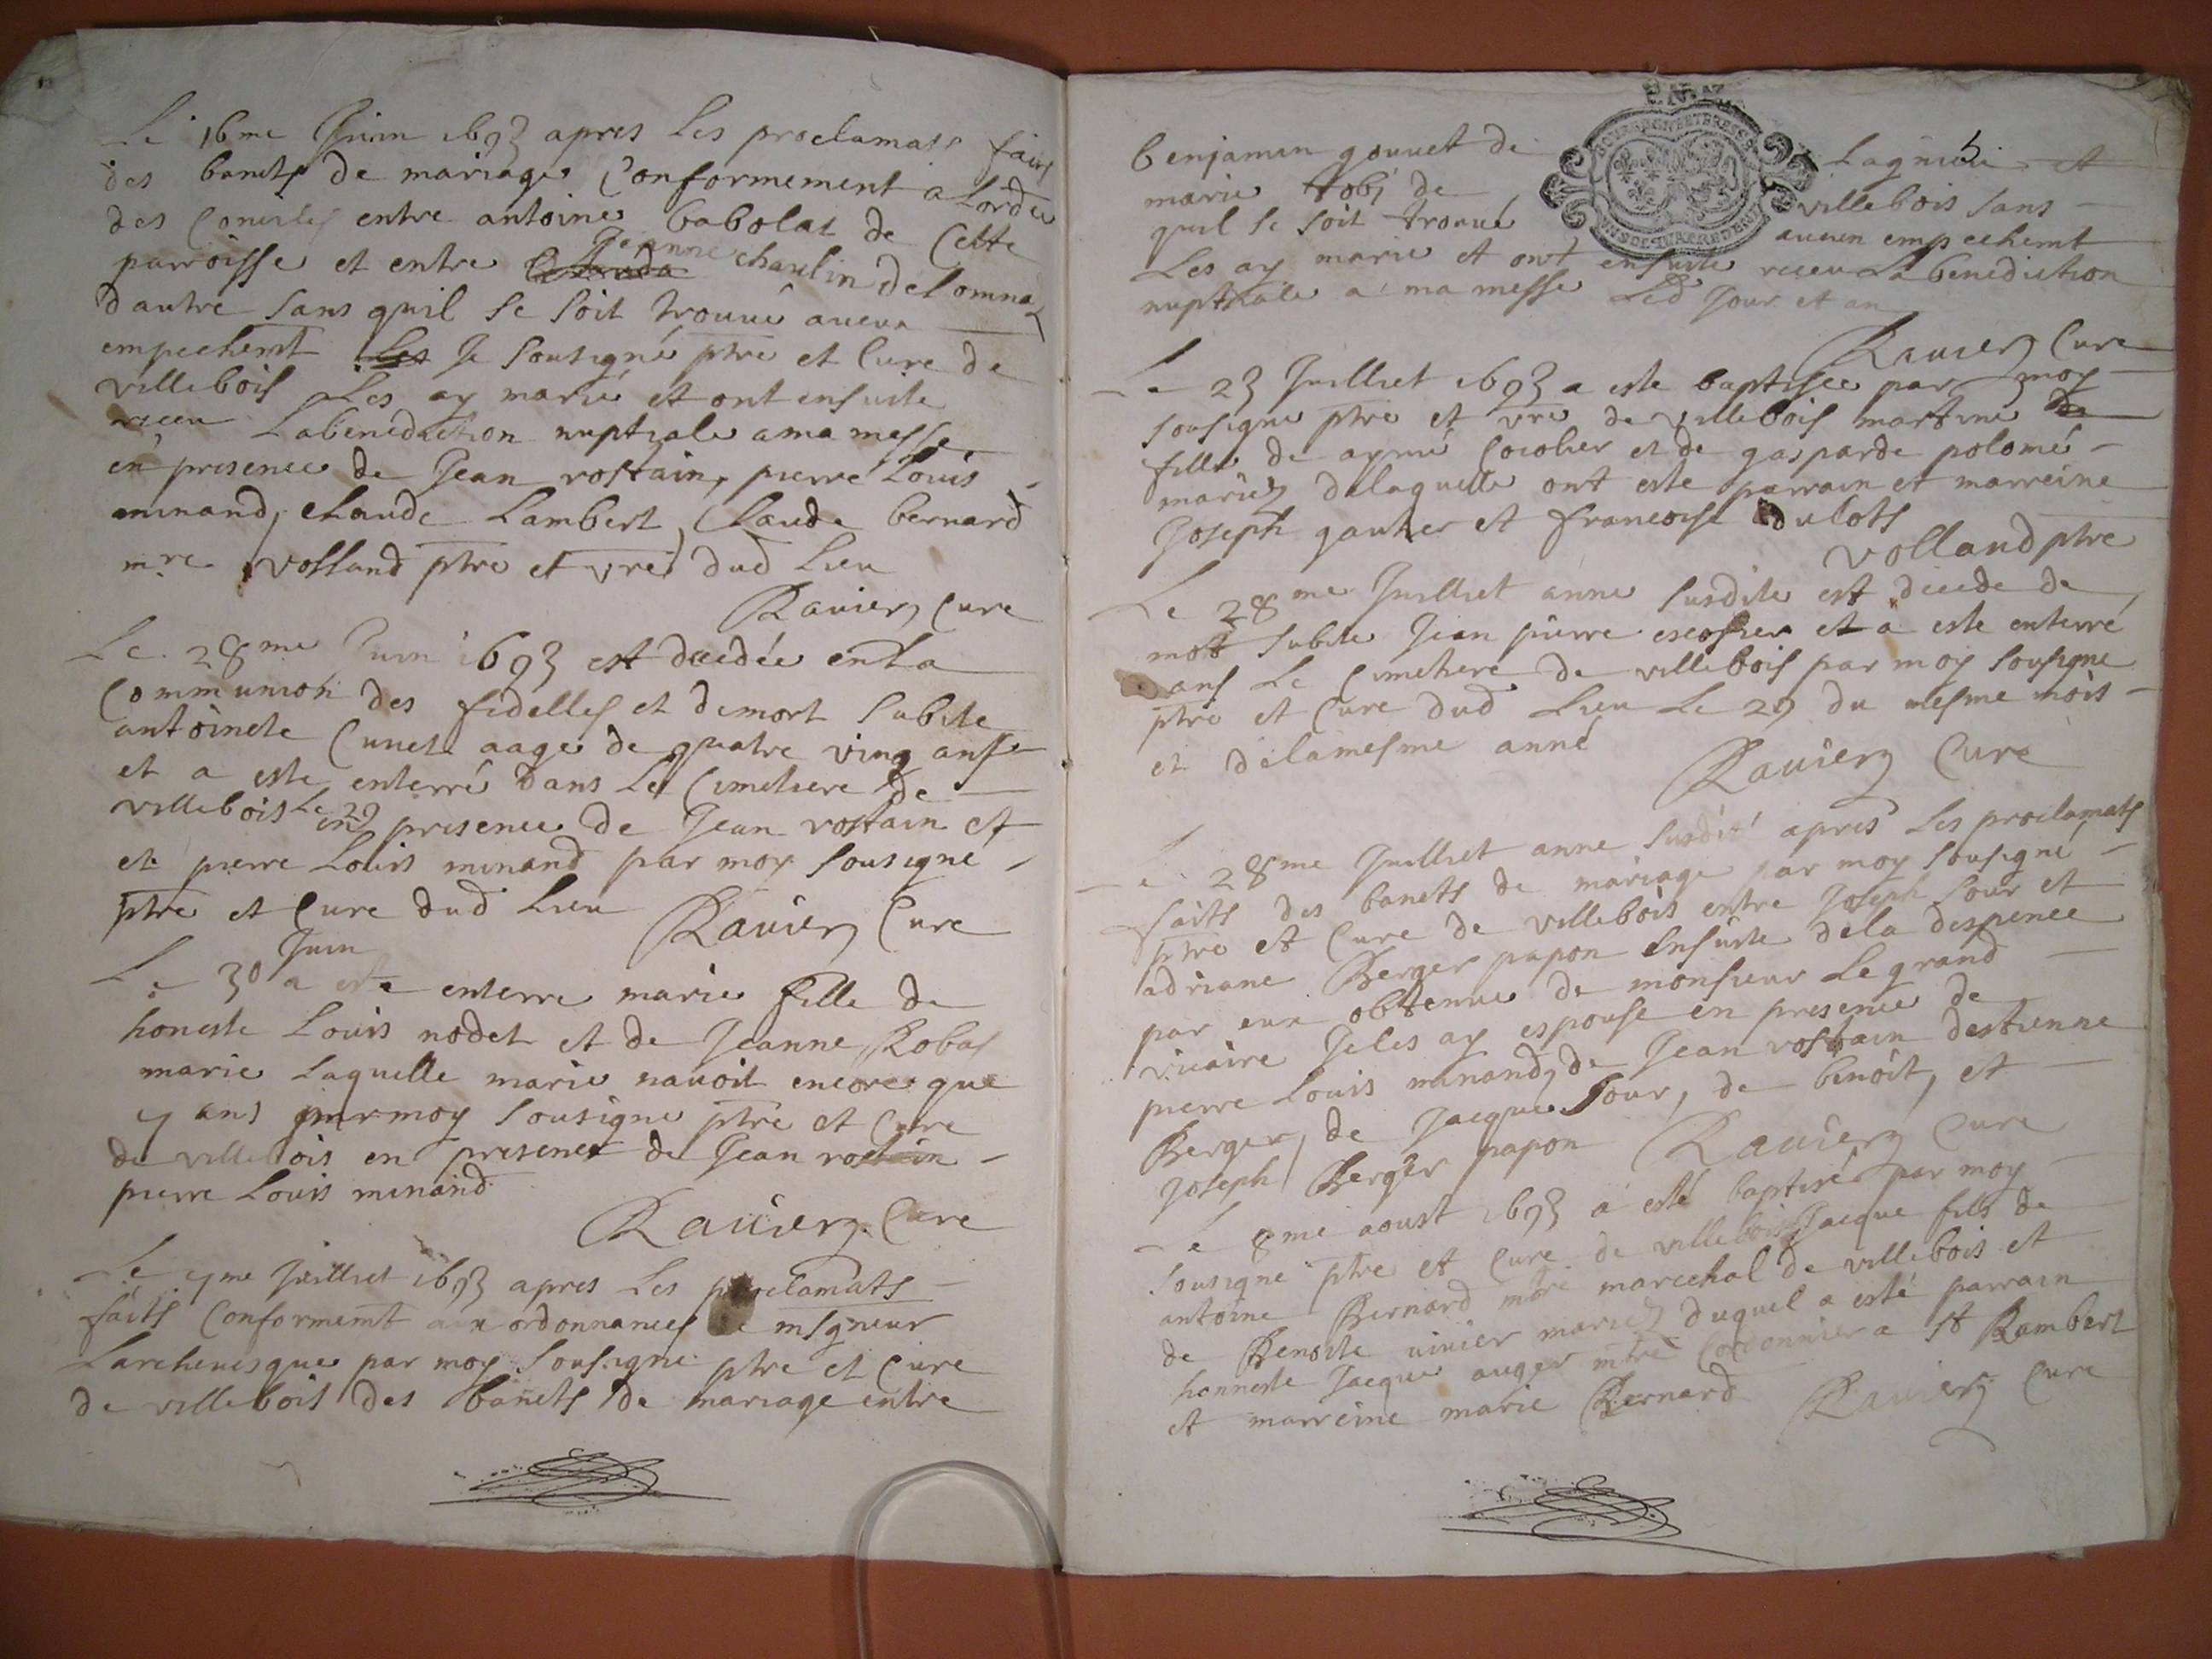 Le 16me Juin 1693 apres Les proclamats faits
des bancts de mariage Conformement a Lordre
des Conciles entre antoine babolat de Cette
parroisse et entre Jeanne chaulin de Lomna
dautre sans quil se soit trouué aucun
empechemt Je sousigné ptre et Cure de
villebois Les ay marié et ont ensuite
receu La benediction nuptiale a ma messe
en presence de Jean rostain, pierre Louis
minand, claude Lambert, Claude bernard
mre volland ptre et vre dud Lieu
Rauier Cure
Le 28me Juin 1693 est decedée en La
Communion des fidelles et de mort subite
antoinete Cunet aage de quatre ving ans
et a este enterré dans Le Cimetiere de
villebois Le 29 en presence de Jean rostain et
et pierre Louis minand par moy sousigné
ptre et Cure dud Lieu Rauier Cure
Juin
Le 30 a este enterre marie fille de
honeste Louis nodet et de Jeanne Robas
marie Laquelle marie nauoit encore que
7 ans par moy sousigne ptre et Cure
de villebois en presence de Jean rostain
pierre Louis minand
Rauier Cure
Le 7me Juilliet 1693 apres Les proclamats
faits Conformemt aux ordonnances de msgneur
Larcheuesque par moy sousigne ptre et Cure
de villebois des bancts de mariage entre
benjamin gouuet de Lagnieu et
marie tobj de villebois sans
quil se soit trouué aucun empechemt
Les ay marie et ont ensuite receu La benediction
nuptiale a ma messe Led Jour et an
Rauier Cure
Le 23 Juilliet 1693 a este baptisee par moy
sousigne ptre et vre de villebois martine
fille de aymé Cocolier et de gasparde polomé
mariez de laquelle ont este parrain et marreine
Joseph gautier et francoise dulots
volland ptre
Le 28me Juilliet anne susdite est decede de
mort subite Jean pierre escofier et a este enterré
dans Le Cimetiere de villebois par moy sousigne
ptre et Cure dud Lieu Le 29 du mesme mois
et de la mesme anné
Rauier Cure
Le 28me Juilliet anne susdit apres Les proclamats
faits des bancts de mariage par moy sousigné
ptre et Cure de villebois entre Joseph sour et
adriane Berger papon Ensuite de la despence
par eux obtenue de monsieur Le grand
vicaire Je les ay espouse en presence de
pierre Louis minand, de Jean rostain destienne
Berger, de Jacque sour, de benoit, et
Joseph Berger papon Rauier Cure
Le 8me aoust 1693 a esté baptisé par moy
sousigne ptre et Cure de villebois Jacque fils de
antoine Bernard mtre marechal de villebois et
de Benoite viuier mariez duquel a esté parrain
honneste Jacque auger mtre Cordonnier a st Rambert
et marreine marie Bernard Rauier Cure